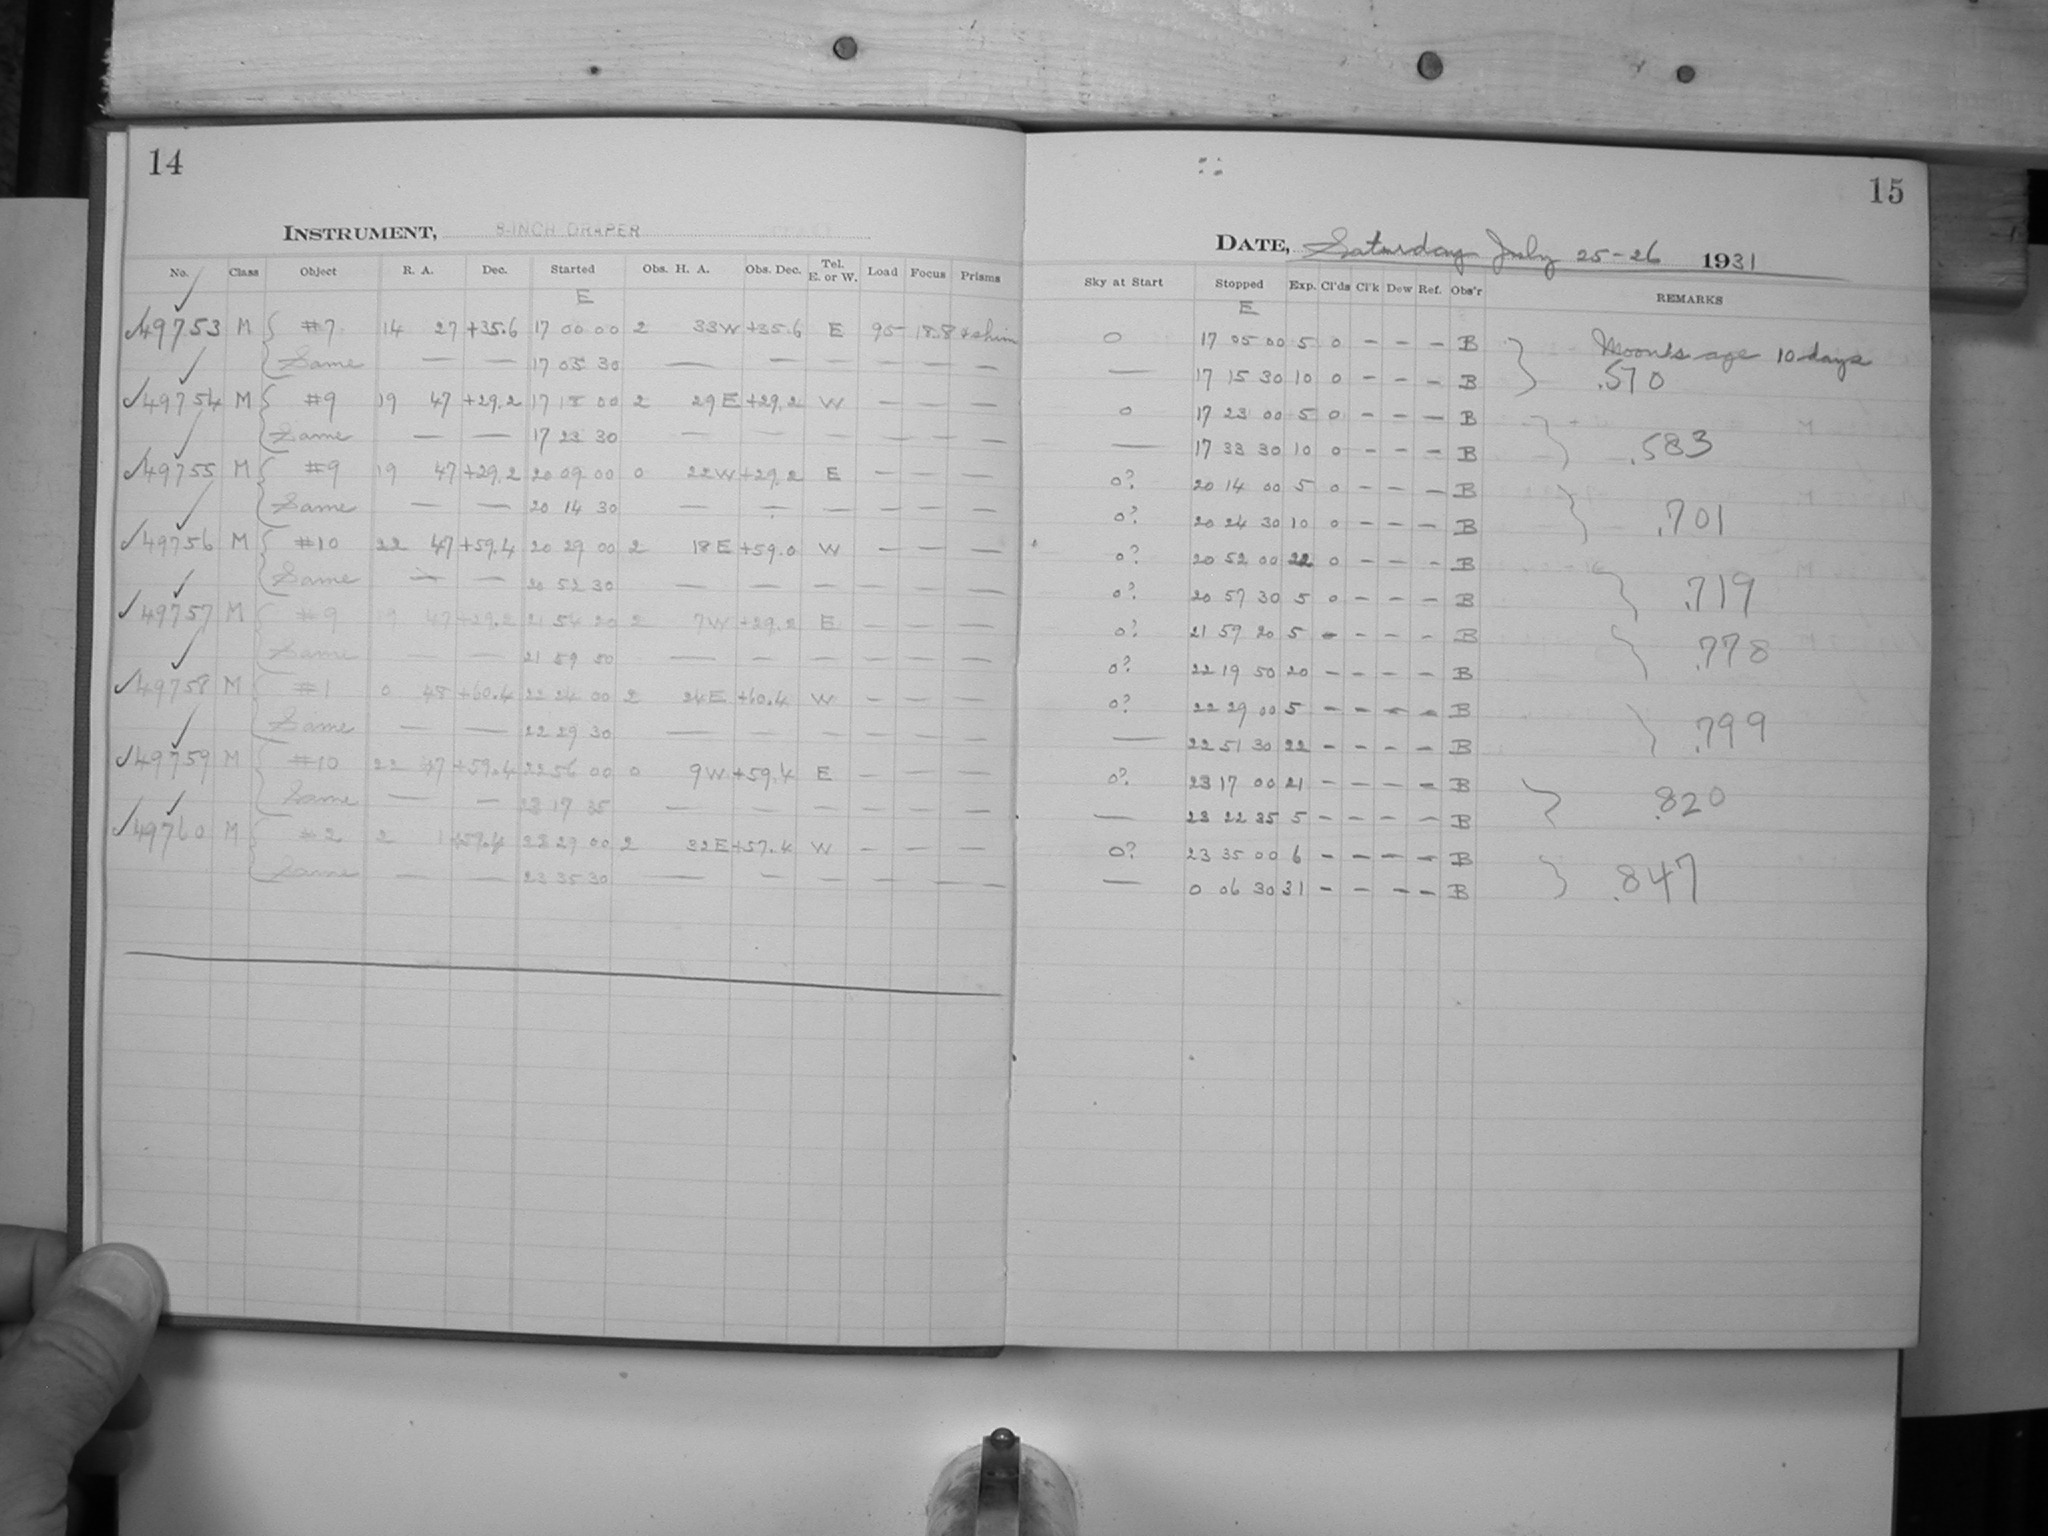 14
INSTRUMENT, 8-INCH DRAPER
No. Class Object R. A. Dec. Started Obs. H. A. Obs. Dec. Tel. E. or W. Load Focus Prisms
E
49753 M #7 14 27 +35.6 17 00 00 2 33W +35.6 E 95 18.8 + shim
Same — — 17 05 30 — — — — — —
49754 M #9 19 47 +29.2 17 18 00 2 29E +29.2 W — — —
Same — — 17 23 30 — — — — — —
49755 M #9 19 47 +29.2 20 09 00 0 22W +29.2 E — — —
Same — — 20 14 30 — — — — — —
49756 M #10 22 47 +59.4 20 29 00 2 18E +59.0 W — — —
Same — — 20 52 30 — — — — — —
49757 M #9 19 47 +29.2 21 54 20 2 7W +29.2 E — — —
Same — — 21 59 50 — — — — — —
49758 M #1 0 48 +60.4 22 24 00 2 24E +60.4 W — — —
Same — — 22 29 30 — — — — — —
49759 M #10 22 47 +59.4 22 56 00 0 9W +59.4 E — — —
Same — — 23 17 35 — — — — — —
49760 M #2 2 1 23 29 00 2 32E +57.4 W — — —
Same — — 23 35 30 — — — — — —
15
DATE, Saturday July 25-26 1931
Sky at Start Stopped Exp. Cl'ds Cl'k Dew Ref. Obs'r REMARKS
E
0 17 05 00 5 0 - - - B Moon's age 10 days
— 17 15 30 10 0 - - - B .570
0 17 23 00 5 0 - - - B
— 17 33 30 10 0 - - - B .583
0? 20 14 00 5 0 - - - B
0? 20 24 30 10 0 - - - B .701
0? 20 52 00 22 0 - - - B
0? 20 57 30 5 0 - - - B .719
0? 21 59 20 5 - - - - B
0? 22 19 50 20 - - - - B .778
0? 22 29 00 5 - - - - B
— 22 51 30 22 - - - - B .799
0? 23 17 00 21 - - - - B
— 23 22 35 5 - - - - B .820
0? 23 35 00 6 - - - - B
— 0 06 30 31 - - - - B .847